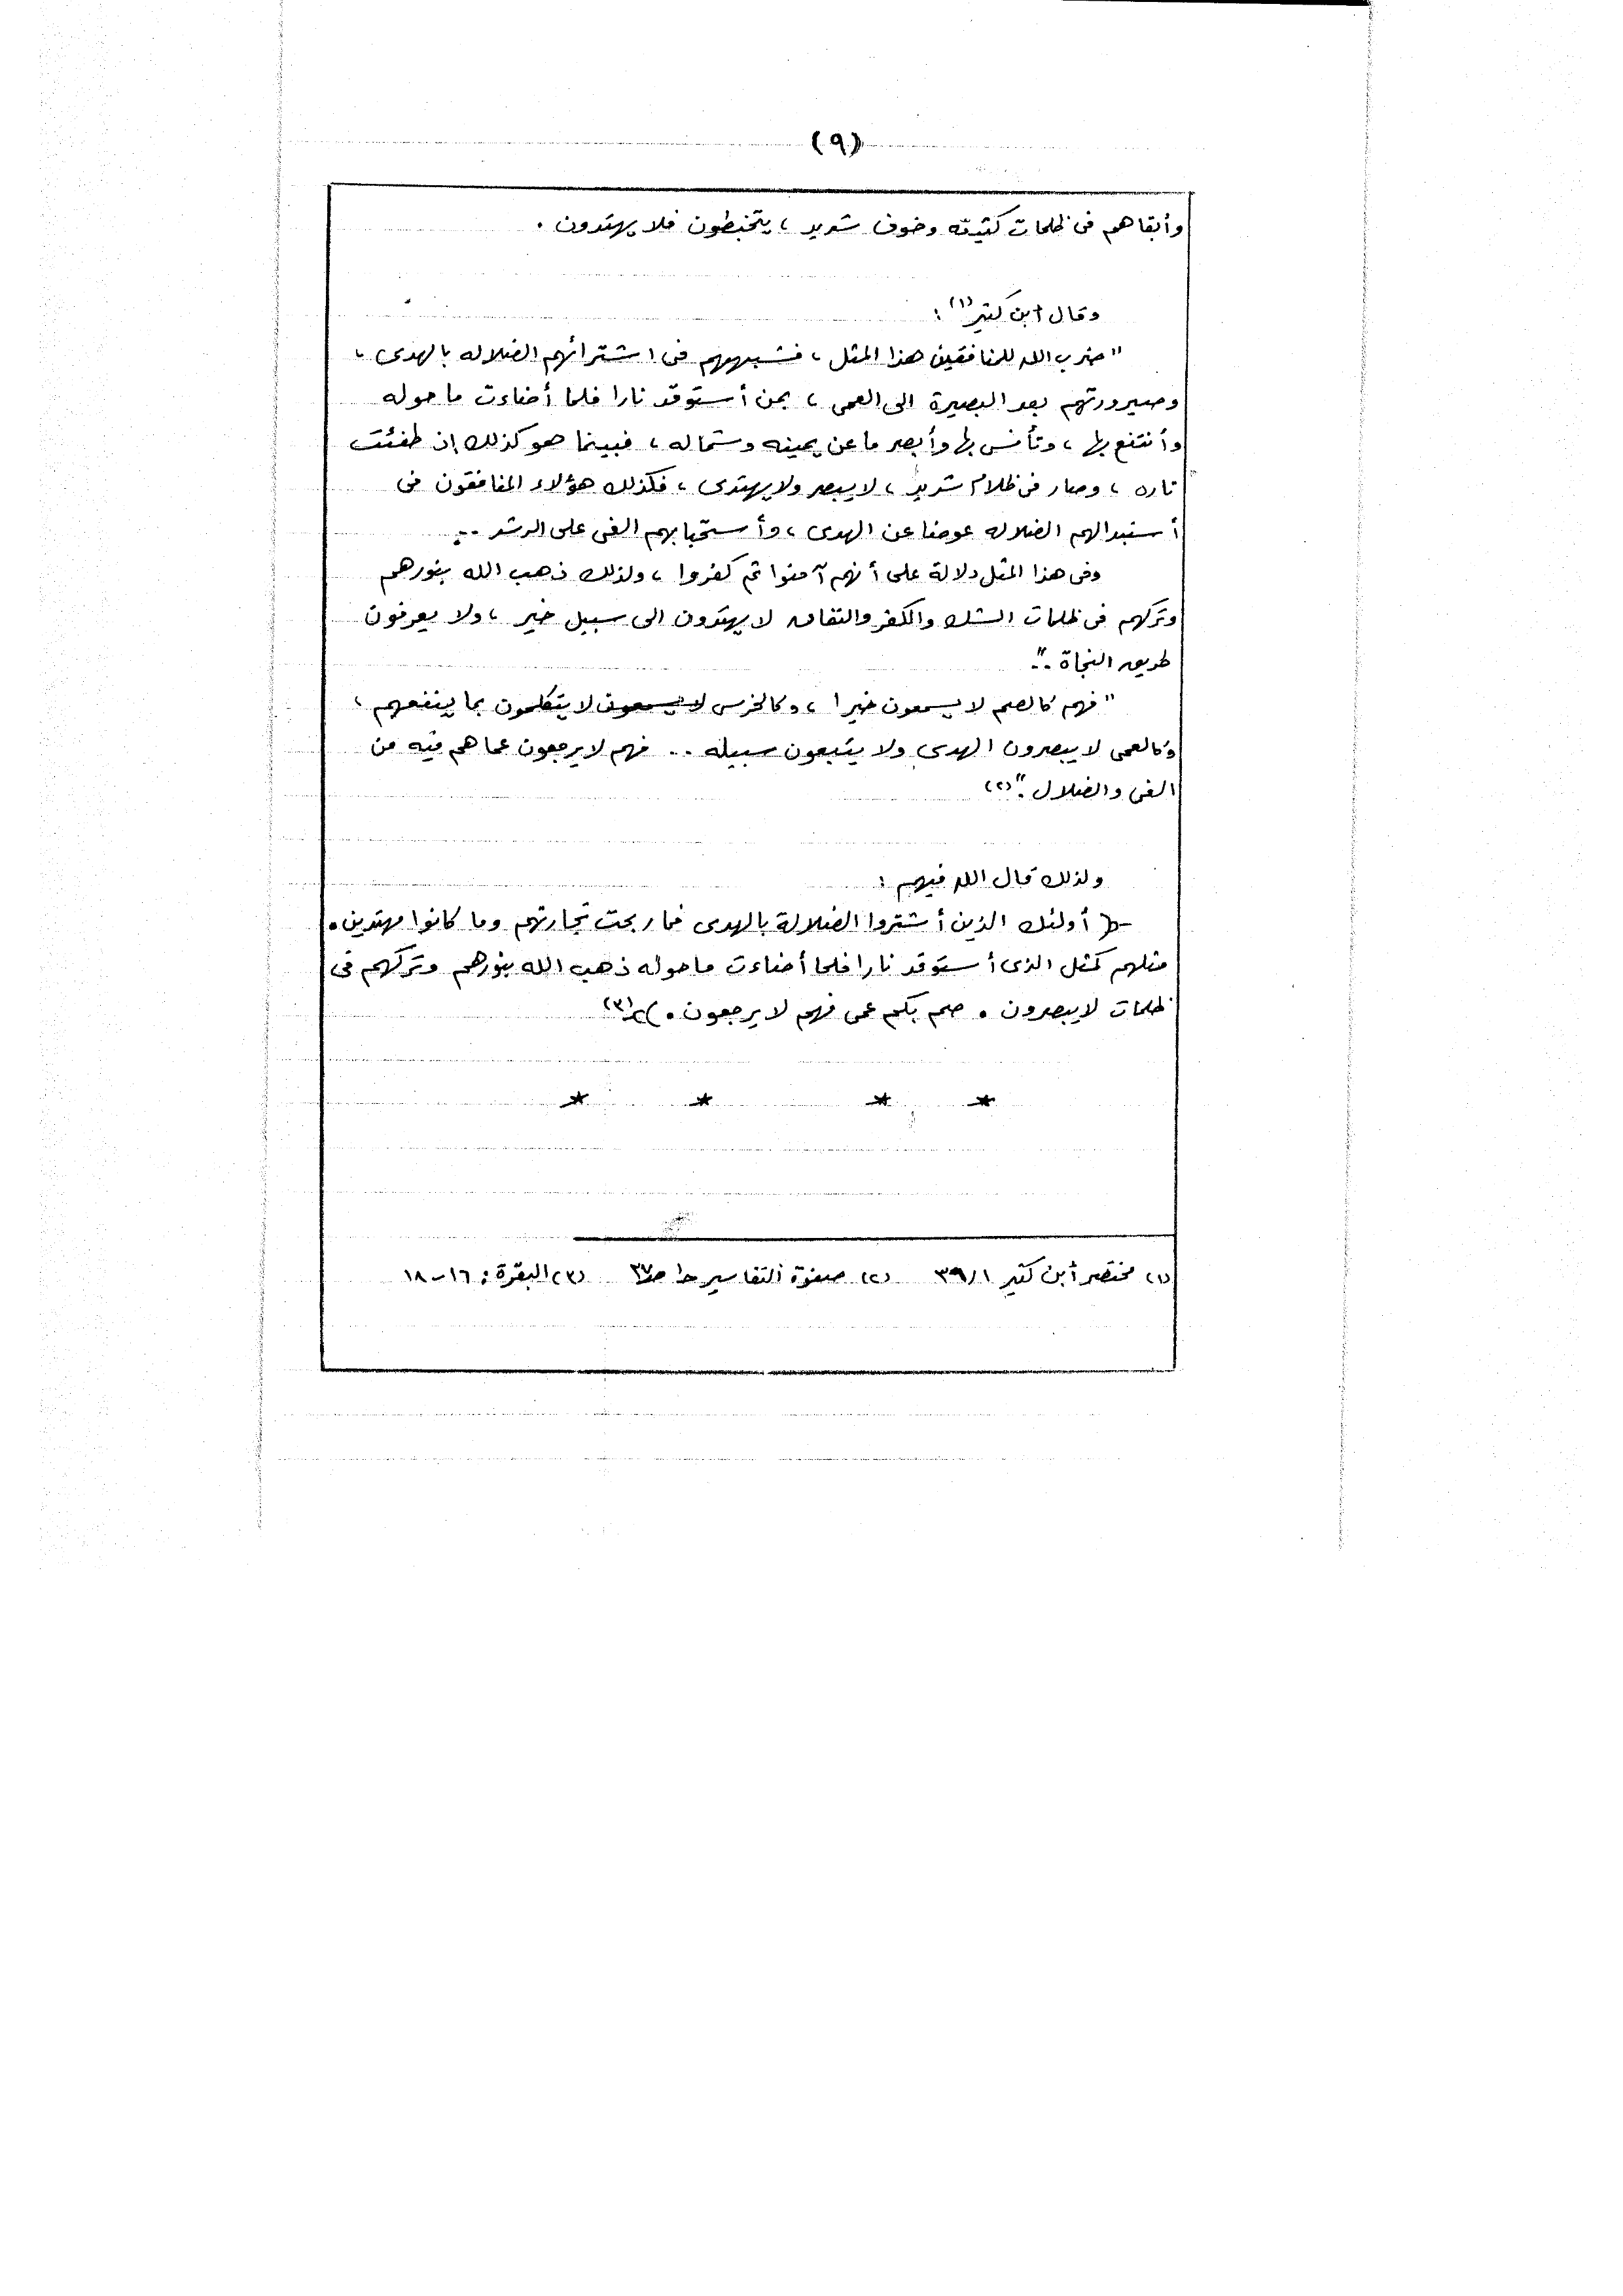 (٩)
وأبقاهم فى ظلمات كثيفه وخوف شديد ، يتخبطون فلا يهتدون .
وقال ابن كثير (١) :
" ضرب الله للمنافقين هذا المثل ، فشبههم فى اشترائهم الضلاله بالهدى ،
وصيرورتهم بعد البصيرة الى العمى ، بمن أستوقد نارا فلما أضاءت ما حوله
وأنتفع بها ، وتأنس بها وأبصر ما عن يمينه وشماله ، فبينما هو كذلك إذ طفئت
ناره ، وصار فى ظلام شديد ، لا يبصر ولا يهتدى ، فكذلك هؤلاء المنافقون فى
أستبدالهم الضلاله عوضا عن الهدى ، وأستحبابهم الغى على الرشد ..
وفى هذا المثل دلالة على أنهم آمنوا ثم كفروا ، ولذلك ذهب الله بنورهم
وتركهم فى ظلمات الشك والكفر والنفاق لا يهتدون الى سبيل خير ، ولا يعرفون
طريق النجاة .."
" فهم كالصم لا يسمعون خيرا ، وكالخرس لا يسمعون لا يتكلمون بما ينفعهم ،
وكالعمى لا يبصرون الهدى ولا يتبعون سبيله .. فهم لا يرجعون عما هم فيه من
الغى والضلال ." (٢)
ولذلك قال الله فيهم :
﴿ أولئك الذين أشتروا الضلالة بالهدى فما ربحت تجارتهم وما كانوا مهتدين .
مثلهم كمثل الذى أستوقد نارا فلما أضاءت ما حوله ذهب الله بنورهم وتركهم فى
ظلمات لا يبصرون . صم بكم عمى فهم لا يرجعون . ﴾ (٣)
* * * *
(١) مختصر أبن كثير ٣٩/١ (٢) صفوة التفاسير حـ١ صـ٣٧ (٣) البقرة : ١٦-١٨